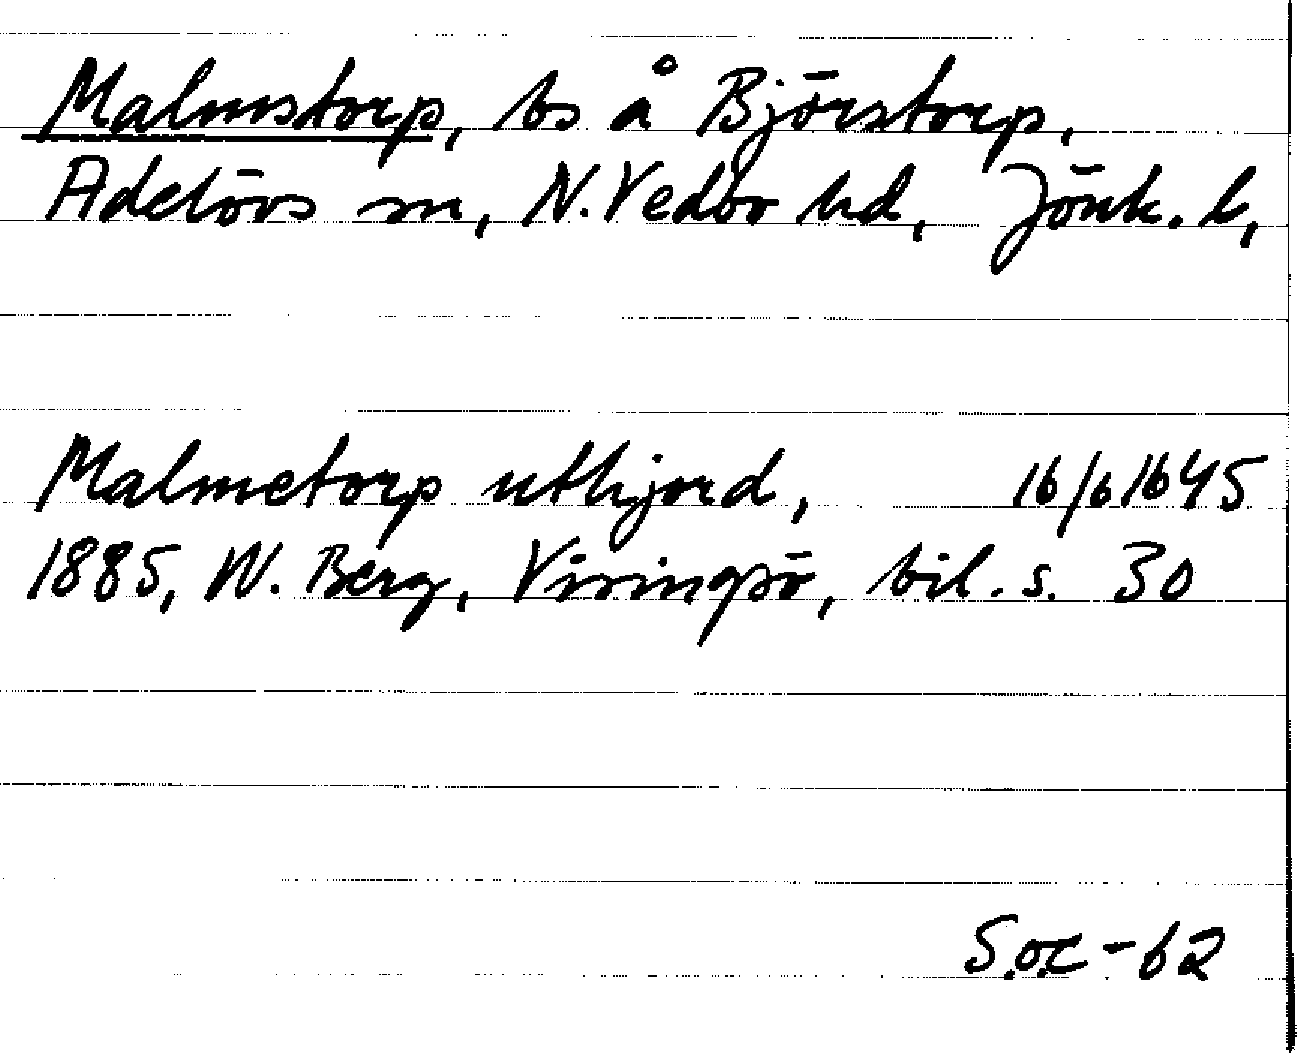 Malmstorp, bs å Björstorp,
Adelövs sn, N. Vedbo hd, Jönk. l,
Malmetorp uthjord, 16/6 1645
1885, W. Berg, Visingsö, bil. s. 30
S.o.E-62